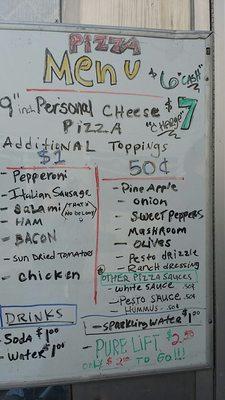 PIZZA
Menu
$6 "CASH"
9" inch Personal Cheese $7
PIZZA "CHARGE"
Additional Toppings
$1
50¢
- Pepperoni
- Italian Sausage
- Salami
- HAM
- BACON
- Sun Dried Tomatoes
- Chicken
- Pine Apple
- onion
- Sweet Peppers
- Mashroom
- olives
- Pesto drizzle
- Ranch dressing
OTHER PIZZA SAUCES
- White sauce .50¢
- Pesto sauce .50¢
- Hummus .50¢
DRINKS
- Soda $1.00
- Water $1.00
- Sparkling Water $1.00
- PURE LIFT $2.50
TO GO!!!